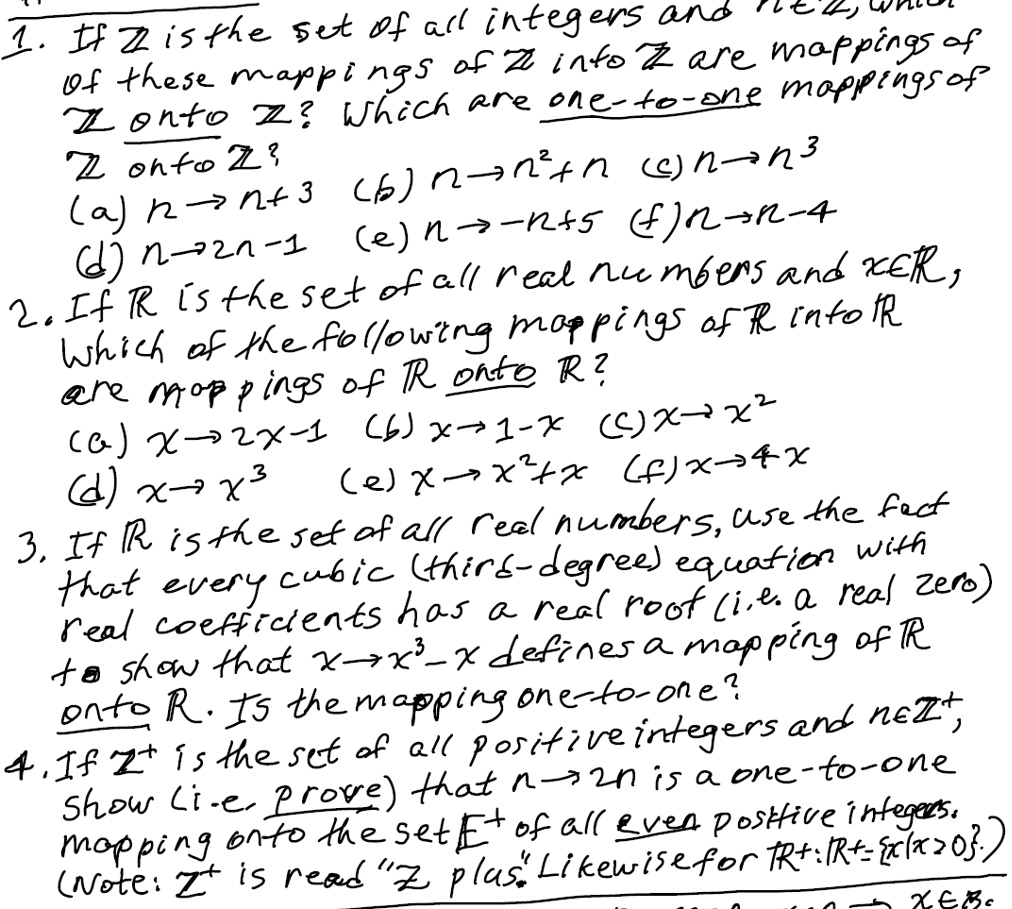 1. If ℤ is the set of all integers and n∈ℤ, which
of these mappings of ℤ into ℤ are mappings of
ℤ onto ℤ? Which are one-to-one mappings of
ℤ onto ℤ?
(a) n→n+3 (b) n→n²+n (c) n→n³
(d) n→2n-1 (e) n→-n+5 (f) n→n-4
2. If ℝ is the set of all real numbers and x∈ℝ,
which of the following mappings of ℝ into ℝ
are mappings of ℝ onto ℝ?
(a) x→2x-1 (b) x→1-x (c) x→x²
(d) x→x³ (e) x→x²+x (f) x→4x
3. If ℝ is the set of all real numbers, use the fact
that every cubic (third-degree) equation with
real coefficients has a real root (i.e. a real zero)
to show that x→x³-x defines a mapping of ℝ
onto ℝ. Is the mapping one-to-one?
4. If ℤ⁺ is the set of all positive integers and n∈ℤ⁺,
show (i.e. prove) that n→2n is a one-to-one
mapping onto the set E⁺ of all even positive integers.
(Note: ℤ⁺ is read "ℤ plus." Likewise for ℝ⁺: ℝ⁺={x|x>0}.)
→ x∈B.